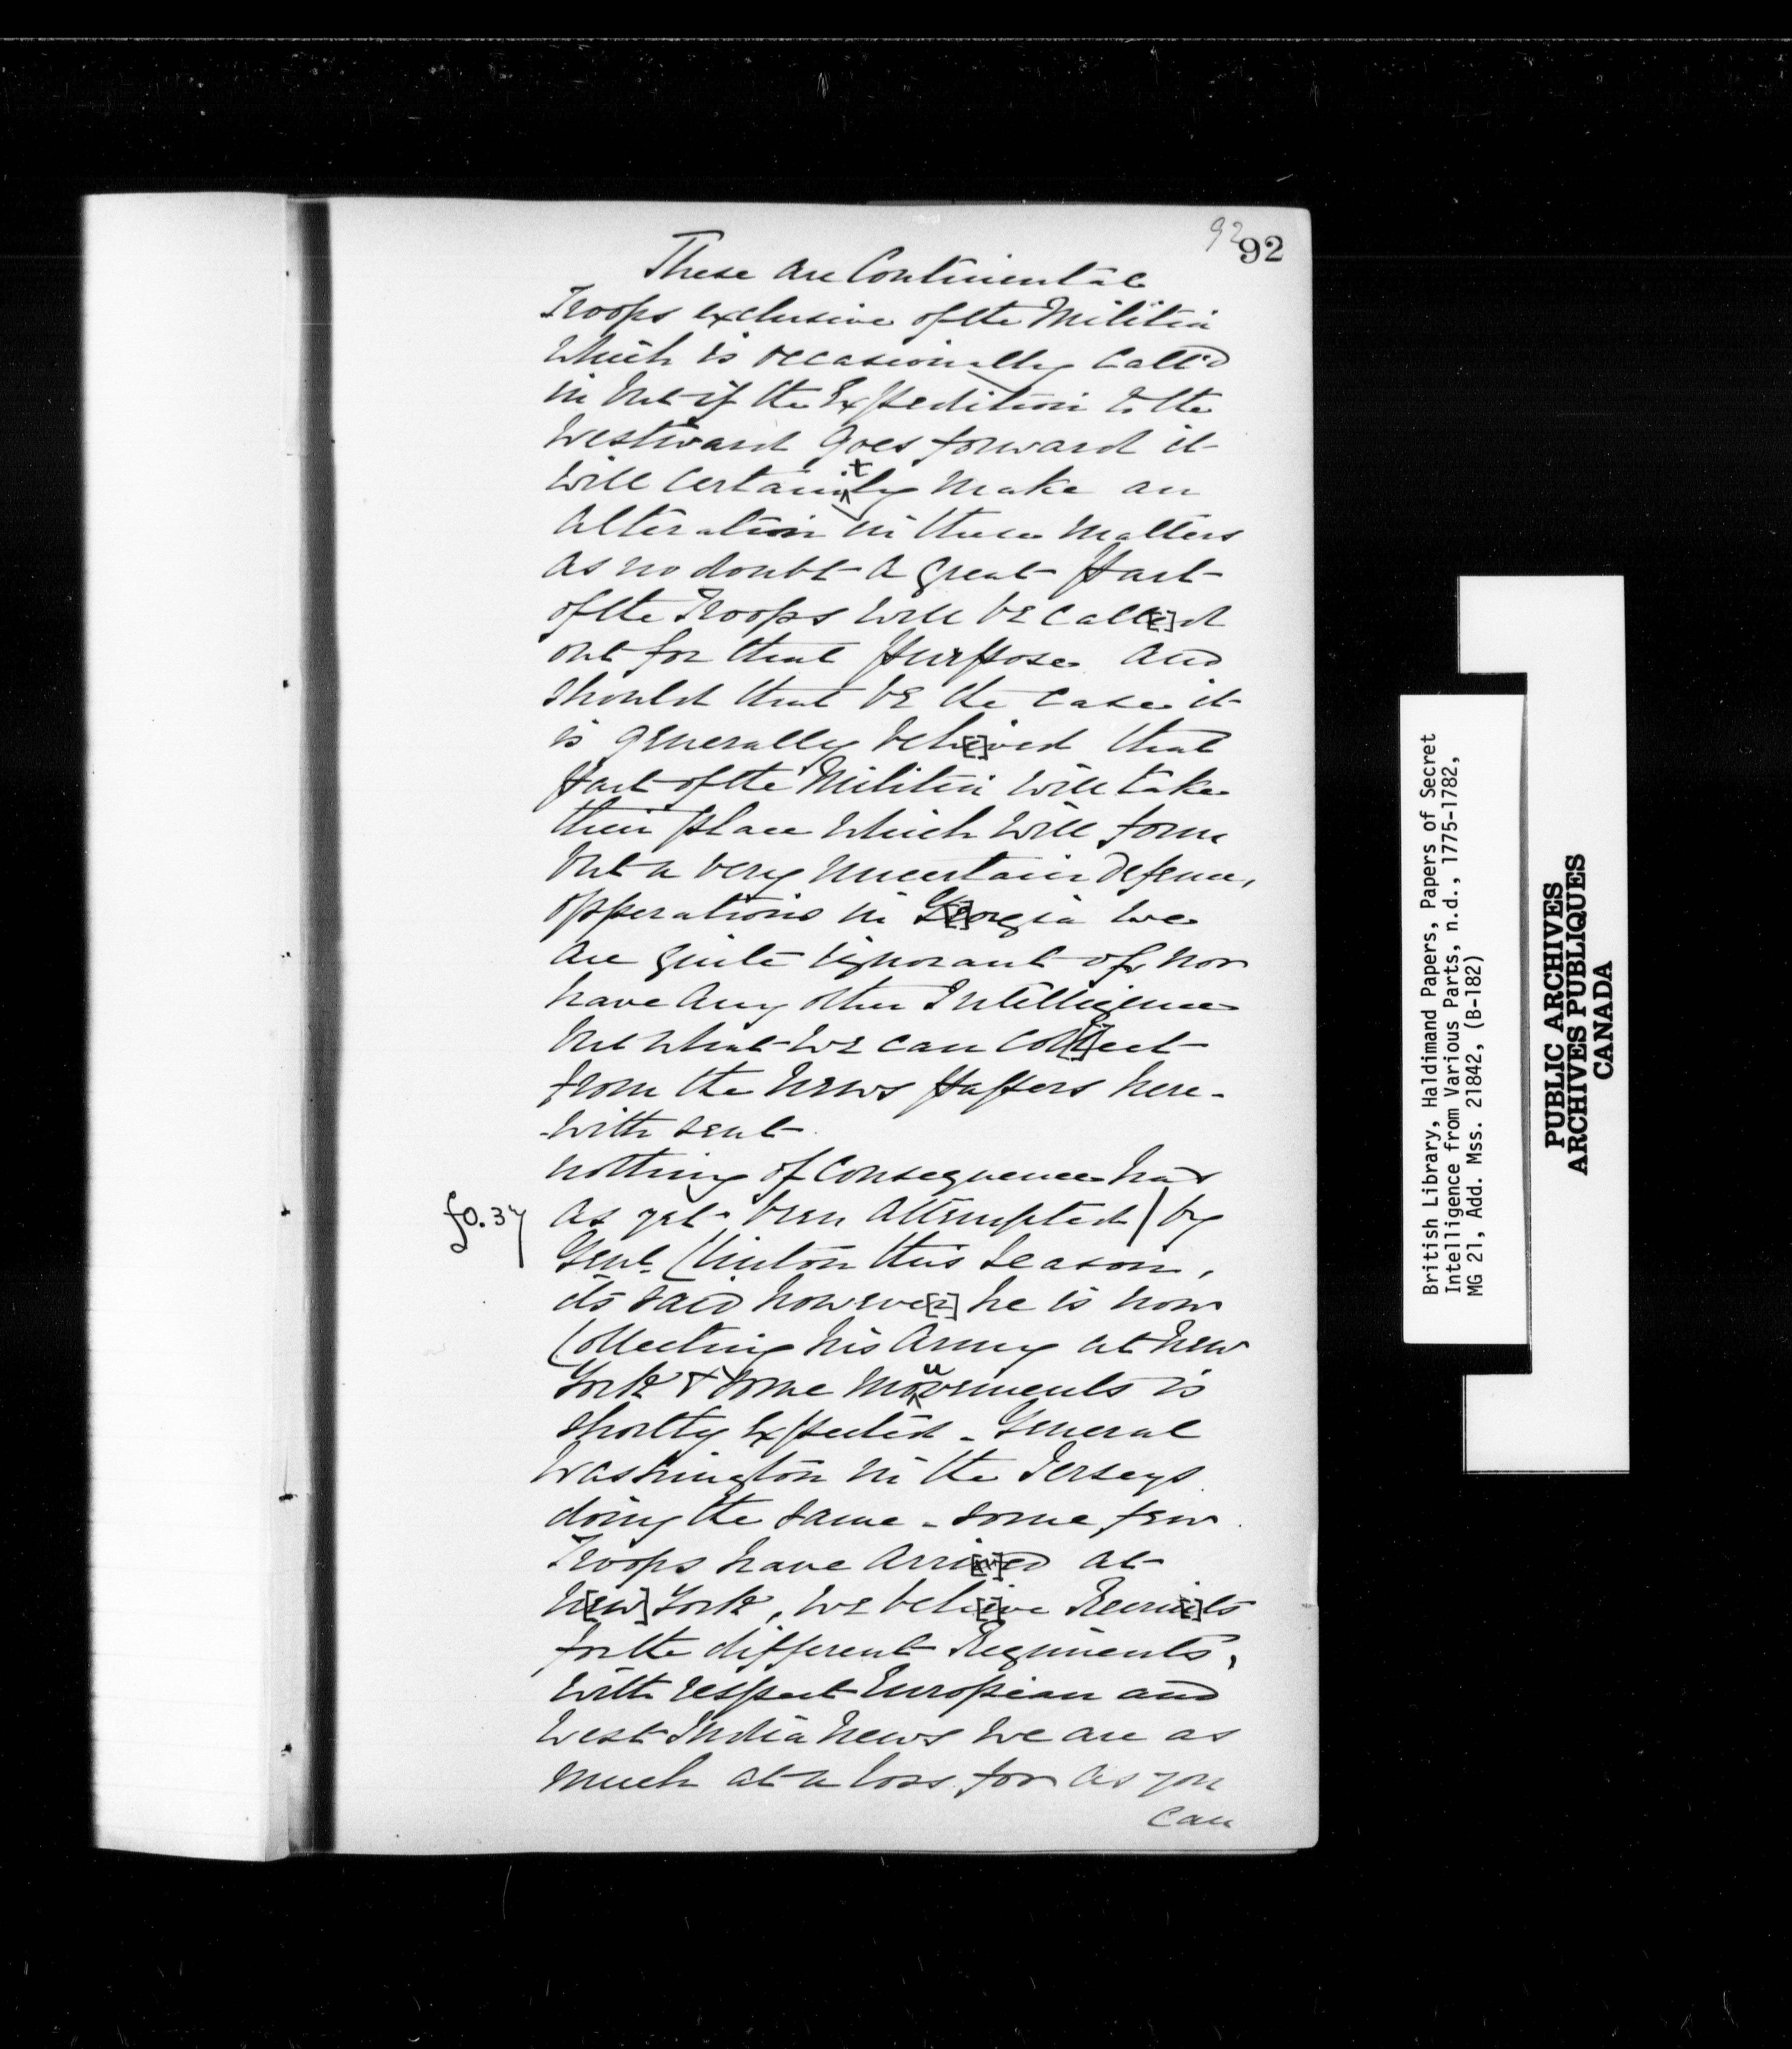 92
92
These are Continental
Troops exclusive of the Militia
which is occasionally call'd
in but if the Expedition to the
Westward Goes forward it
will certainly make an
Alteration in these matters
as no doubt a great part
of the Troops will be call[e]d
out for that purpose and
should that be the case it
is generally beli[e]ved that
part of the Militia will take
their place which will form
but a very uncertain Defence,
opperations in G[e]orgia we
are quite ignorant of, nor
have any other Intelligence
but what we can col[l]ect
from the News papers here-
-with sent.
nothing of Consequence has
fo. 37 as yet been attempted / by
Genl. Clinton this Season,
its said howeve[r] he is now
Collecting his Army at New
York & some mouvements is
shortly Expected - General
Washington in the Jerseys
doing the same - some few
Troops have arri[v]ed at
N[ew] York, we beli[e]ve Recru[i]ts
for the different Regiments,
with respect European and
West India News we are as
much at a loss for as you
can
British Library, Haldimand Papers, Papers of Secret
Intelligence from Various Parts, n.d., 1775-1782,
MG 21, Add. Mss. 21842, (B-182)
PUBLIC ARCHIVES
ARCHIVES PUBLIQUES
CANADA